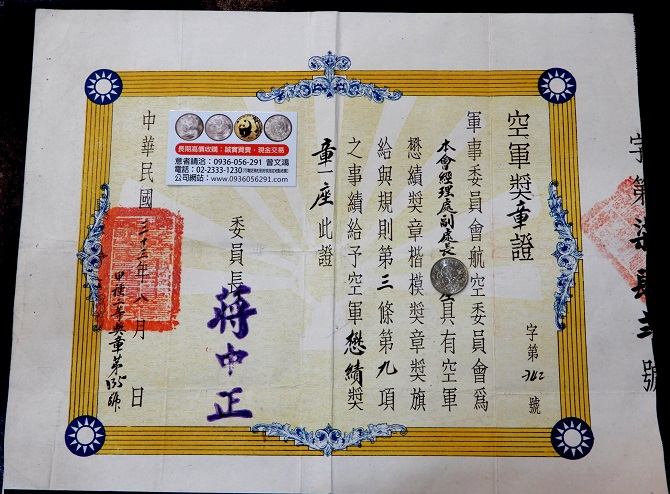 空軍獎章證
字第342號
軍事委員會航空委員會爲
本會經理處副處長
具有空軍
懋績獎章楷模獎章獎旗
給與規則第三條第九項
之事績給予空軍懋績獎
章一座此證
委員長
蔣中正
中華民國三十三年八月 日
甲種一等獎章第 號
字第柒肆 號
長期高價收購：誠實買賣，現金交易
意者請洽：0936-056-291 曾文鴻
電話：02-2333-1230
公司網站：www.0936056291.com